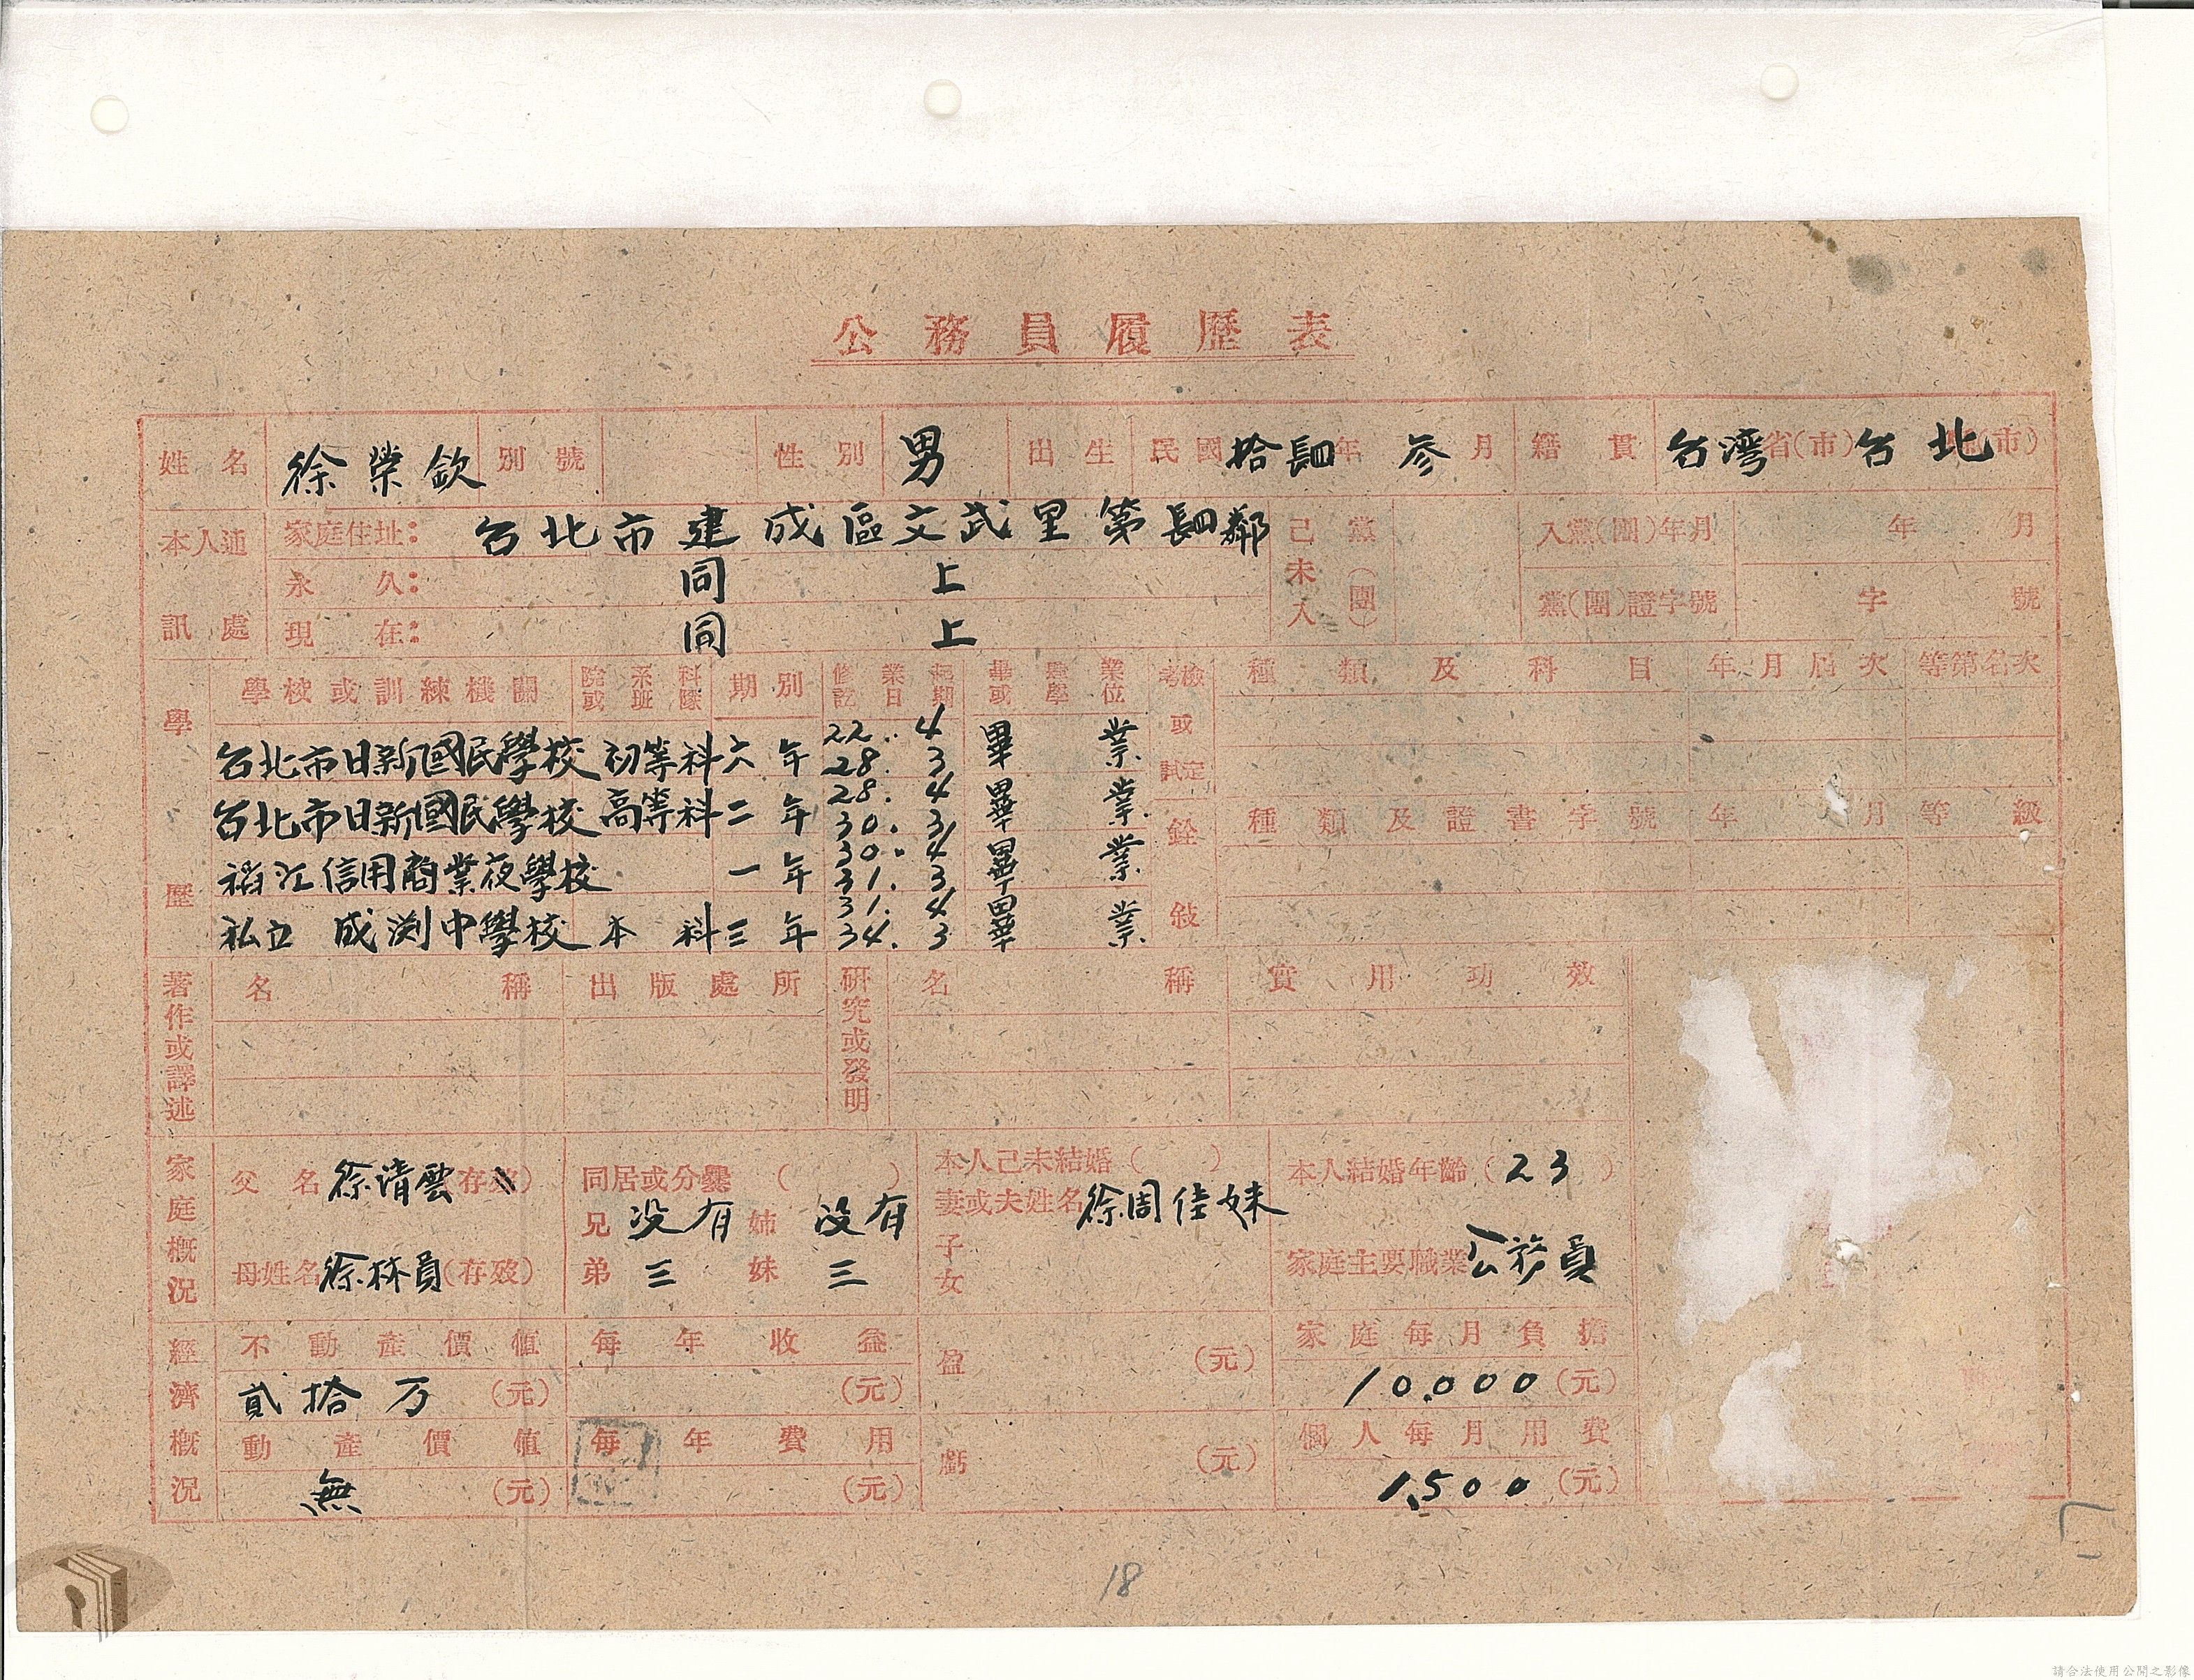 公務員履歷表
姓名 徐榮欽 別號 性別 男 出生 民國拾肆年參月 籍貫 台灣省(市)台北縣(市)
本人通訊處 家庭住址：台北市建成區文武里第肆鄰
永久：同上
現在：同上
己未入黨(團) 入黨(團)年月 年 月
黨(團)證字號 字 號
學歷 學校或訓練機關 院系科或班隊 期別 修業起訖日期 畢業或學位
台北市日新國民學校 初等科 六年 22.4 28.3 畢業
台北市日新國民學校 高等科 二年 28.4 30.3 畢業
稻江信用商業夜學校 一年 30.4 31.3 畢業
私立成渕中學校 本科 三年 31.4 34.3 畢業
考試或檢定 種類及科目 年月屆次 等第名次
銓敍 種類及證書字號 年月 等級
著作或譯述 名稱 出版處所 研究或發明 名稱 實用功效
家庭概況 父名 徐清雲(存歿) 同居或分爨( ) 本人己未結婚( ) 本人結婚年齡(23)
兄 沒有 姉 沒有 妻或夫姓名 徐周佳妹
母姓名 徐林員(存歿) 弟 三 妹 三 子女 家庭主要職業 公務員
經濟概況 不動產價值 每年收益 盈 (元) 家庭每月負擔
貳拾万(元) (元) 10.000(元)
動產價值 每年費用 虧 (元) 個人每月用費
無(元) (元) 1.500(元)
18
請合法使用公開之影像